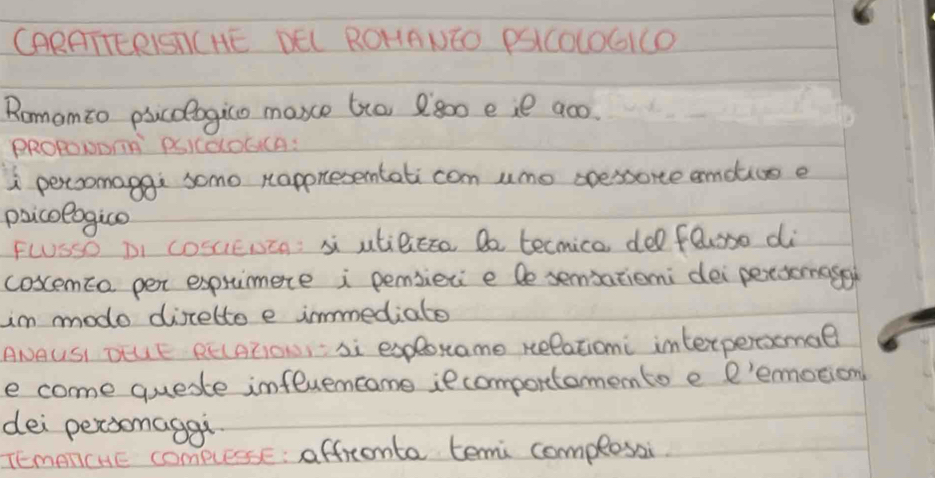 CARATTERISTICHE DEL ROMANZO PSICOLOGICO
Romanzo psicologico nasce tra l'800 e il 900.
PROFONDITÀ PSICOLOGICA:
i personaggi sono rappresentati con uno spessore emotivo e
psicologico
FLUSSO DI COSCIENZA: si utilizza la tecnica del flusso di
coscenza per esprimere i pensieri e le sensazioni dei personaggi
in modo diretto e immediato
ANALISI DELLE RELAZIONI: si esplorano relazioni interpersonali
e come queste influenzano il comportamento e l'emozioni
dei personaggi.
TEMATICHE COMPLESSE: affronta temi complessi